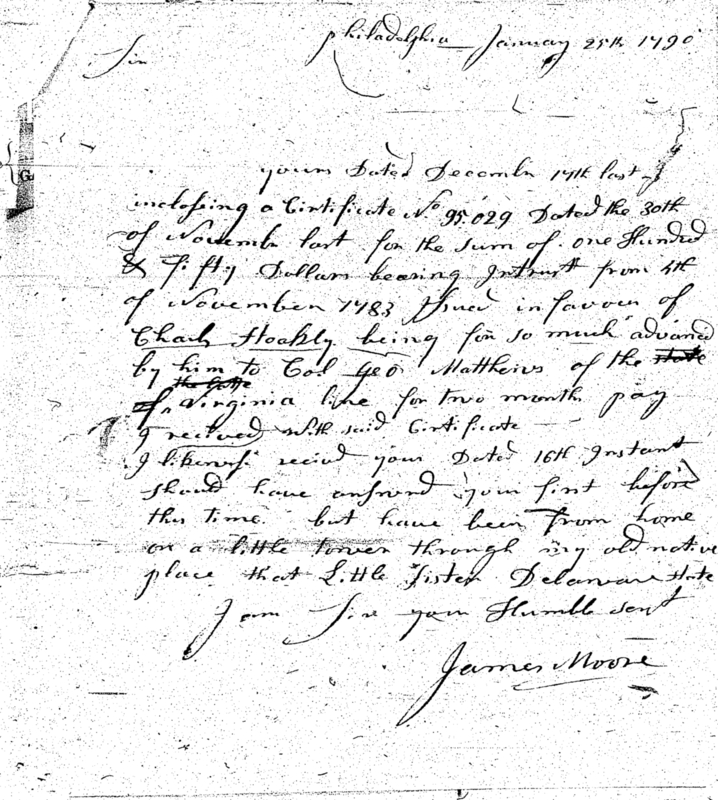 Philadelphia January 25th 1790
Sir
yours Dated Decembr 17th last
inclosing a Certificate No. 95.029 Dated the 30th
of Novembr last for the sum of one Hundred
& Fifty Dollars bearing Intrust from 4th
of November 1783 Issued in favour of
Charls Stoakly being for so much advanced
by him to Col Geo Matthews of the state
the
Virginia line for two months pay
I recieved with said Certificate
I likewise recievd your Dated 16th Instant
should have answerd your first before
this time but have been from home
on a little tower through my old native
place that Little Sister Delaware State
I am Sir your Humble servt
James Moore